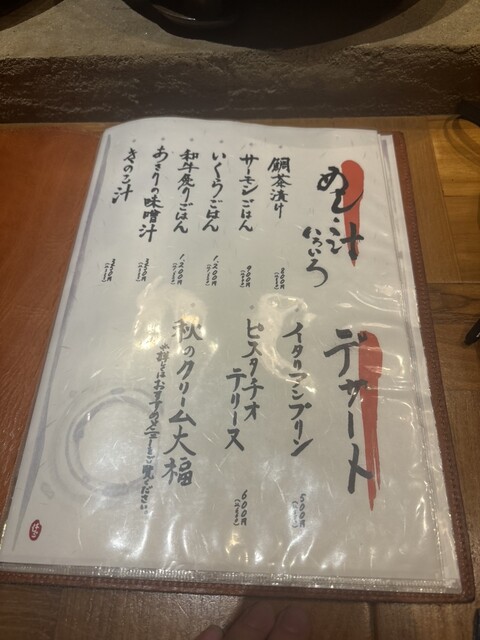 めし・汁
いろいろ
鯛茶漬け
サーモンごはん
900円
いくらごはん
1,200円
和牛炙りごはん
1,200円
あさりの味噌汁
350円
きのこ汁
350円
デザート
イタリアンプリン
500円
ピスタチオ
テリーヌ
600円
秋のクリーム大福